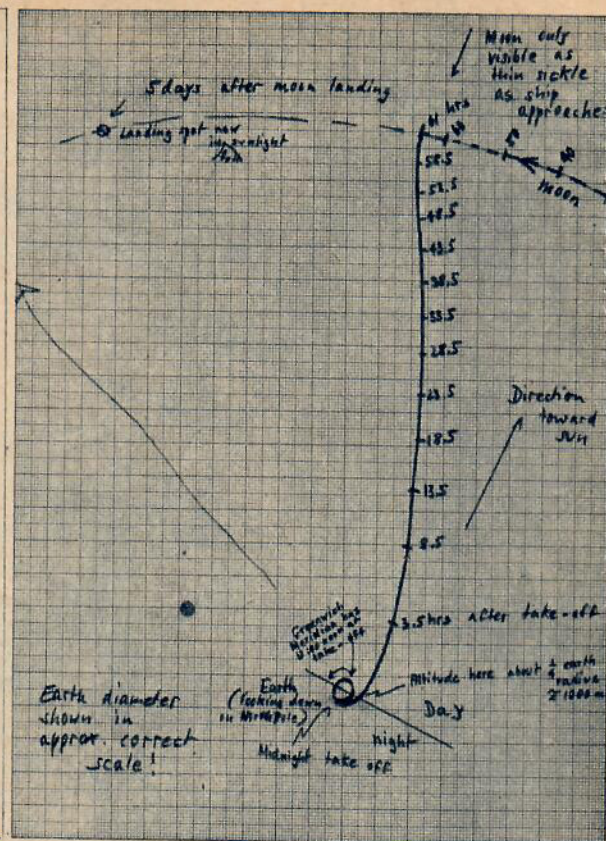 Moon only
visible as
thin sickle
as ship
approaches
5 days after moon landing
Landing spot now
in sunlight
61 hrs
58.5
53.5
48.5
43.5
38.5
33.5
28.5
23.5
18.5
13.5
8.5
3.5 hrs after take-off
Moon
Direction
toward
sun
Greenwich
Meridian has
noon at
take-off
Earth
(looking down
on Northpole)
Altitude here about
earth
radius
Day
night
Midnight take off
Earth diameter
shown in
approx. correct
scale!